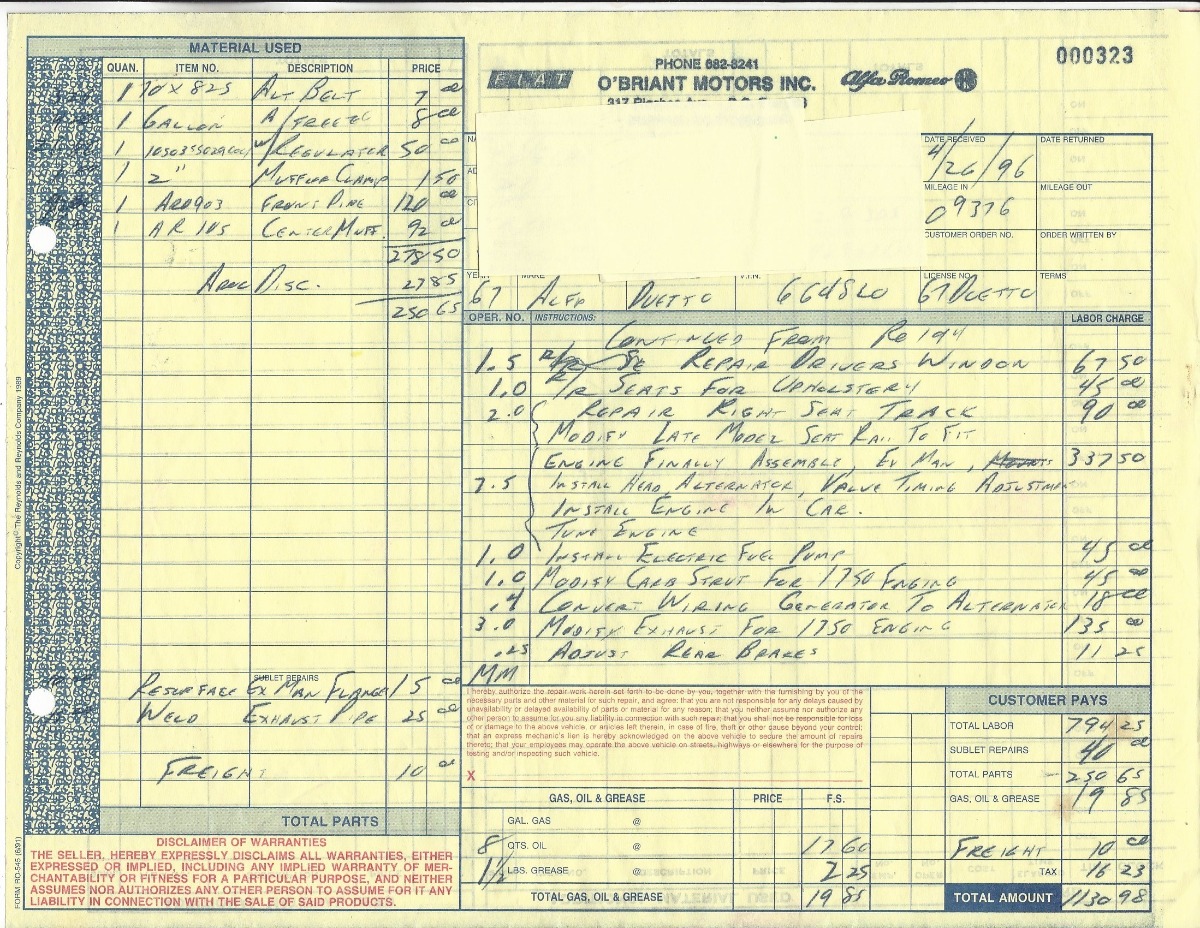 MATERIAL USED
QUAN. ITEM NO. DESCRIPTION PRICE
1 10 x 825 ALT BELT 7 00
1 GALLON A/FREEZE 8 00
1 W/REGULATOR 50 00
1 2" MUFFLER CLAMP 1 50
1 ARD903 FRONT PIPE 120 00
1 AR 105 CENTER MUFF. 92 00
278 50
DISC. 27 85
250 65
SUBLET REPAIRS
RESURFACE EX MAN FLANGE 15 00
WELD EXHAUST PIPE 25 00
FREIGHT 10 00
TOTAL PARTS
DISCLAIMER OF WARRANTIES
THE SELLER, HEREBY EXPRESSLY DISCLAIMS ALL WARRANTIES, EITHER
EXPRESSED OR IMPLIED, INCLUDING ANY IMPLIED WARRANTY OF MER-
CHANTABILITY OR FITNESS FOR A PARTICULAR PURPOSE, AND NEITHER
ASSUMES NOR AUTHORIZES ANY OTHER PERSON TO ASSUME FOR IT ANY
LIABILITY IN CONNECTION WITH THE SALE OF SAID PRODUCTS.
Copyright© The Reynolds and Reynolds Company 1989
FORM RO-545 (6/91)
000323
PHONE 682-8241
FIAT O'BRIANT MOTORS INC. Alfa Romeo
DATE RECEIVED DATE RETURNED
4/26/96
MILEAGE IN MILEAGE OUT
09376
CUSTOMER ORDER NO. ORDER WRITTEN BY
YEAR MAKE V.I.N. LICENSE NO. TERMS
67 ALFA DUETTO 664820 67 DUETTO
OPER. NO. INSTRUCTIONS: LABOR CHARGE
CONTINUED FROM RO 194
1.5 REPAIR DRIVERS WINDOW 67 50
1.0 R/R SEATS FOR UPHOLSTERY 45 00
2.0 REPAIR RIGHT SEAT TRACK 90 00
MODIFY LATE MODEL SEAT RAIL TO FIT
ENGINE FINALLY ASSEMBLE, EX MAN, 337 50
7.5 INSTALL HEAD, ALTERNATOR, VALVE TIMING ADJUSTMENT
INSTALL ENGINE IN CAR.
TUNE ENGINE
1.0 INSTALL ELECTRIC FUEL PUMP 45 00
1.0 MODIFY CARB STRUT FOR 1750 ENGINE 45 00
.4 CONVERT WIRING GENERATOR TO ALTERNATOR 18 00
3.0 MODIFY EXHAUST FOR 1750 ENGINE 135 00
.25 ADJUST REAR BRAKES 11 25
MM
I hereby authorize the repair work herein set forth to be done by you, together with the furnishing by you of the
necessary parts and other material for such repair, and agree: that you are not responsible for any delays caused by
unavailability or delayed availability of parts or material for any reason; that you neither assume nor authorize any
other person to assume for you any liability in connection with such repair; that you shall not be responsible for loss
of or damage to the above vehicle, or articles left therein, in case of fire, theft or other cause beyond your control;
that an express mechanic's lien is hereby acknowledged on the above vehicle to secure the amount of repairs
thereto; that your employees may operate the above vehicle on streets, highways or elsewhere for the purpose of
testing and/or inspecting such vehicle.
X
GAS, OIL & GREASE PRICE F.S.
GAL. GAS @
8 QTS. OIL @ 17 60
1 1/2 LBS. GREASE @ 2 25
TOTAL GAS, OIL & GREASE 19 85
CUSTOMER PAYS
TOTAL LABOR 794 25
SUBLET REPAIRS 40 00
TOTAL PARTS 250 65
GAS, OIL & GREASE 19 85
FREIGHT 10 00
TAX 16 23
TOTAL AMOUNT 1130 98